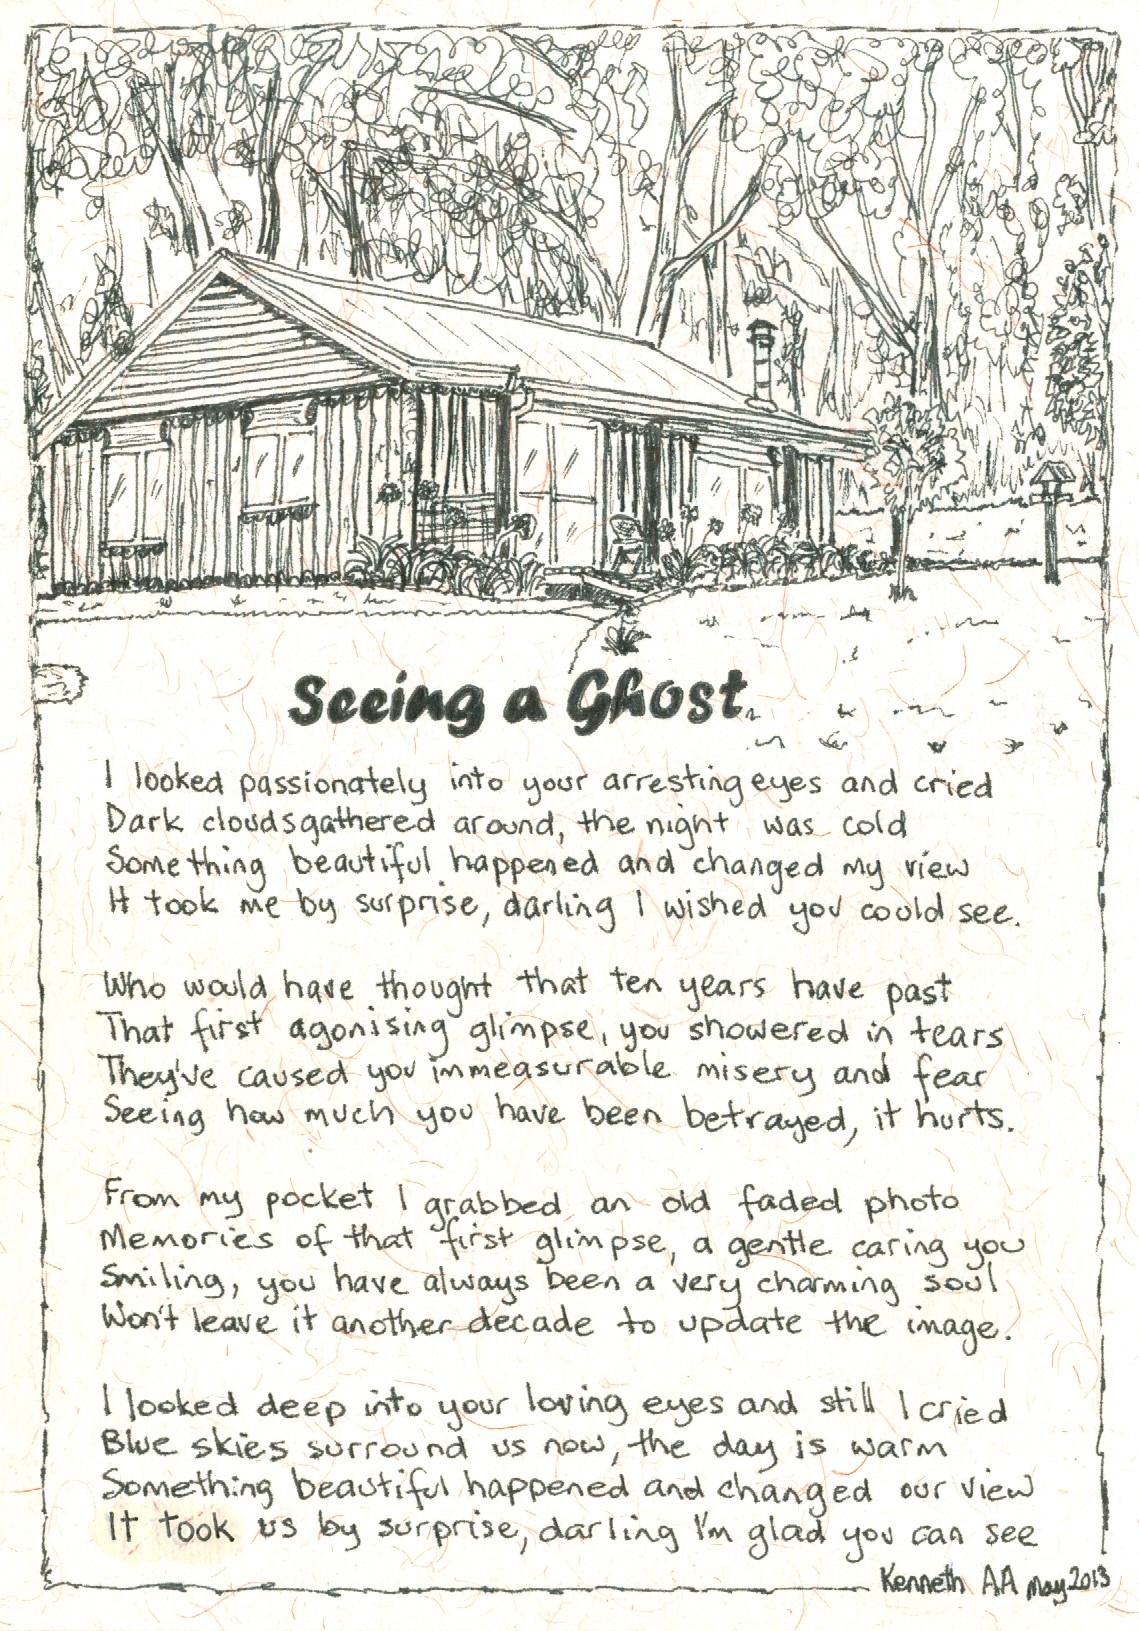 Seeing a Ghost
I looked passionately into your arresting eyes and cried
Dark clouds gathered around, the night was cold
Something beautiful happened and changed my view
It took me by surprise, darling I wished you could see.
Who would have thought that ten years have past
That first agonising glimpse, you showered in tears
They've caused you immeasurable misery and fear
Seeing how much you have been betrayed, it hurts.
From my pocket I grabbed an old faded photo
Memories of that first glimpse, a gentle caring you
Smiling, you have always been a very charming soul
Won't leave it another decade to update the image.
I looked deep into your loving eyes and still I cried
Blue skies surround us now, the day is warm
Something beautiful happened and changed our view
It took us by surprise, darling I'm glad you can see
Kenneth AA May 2013